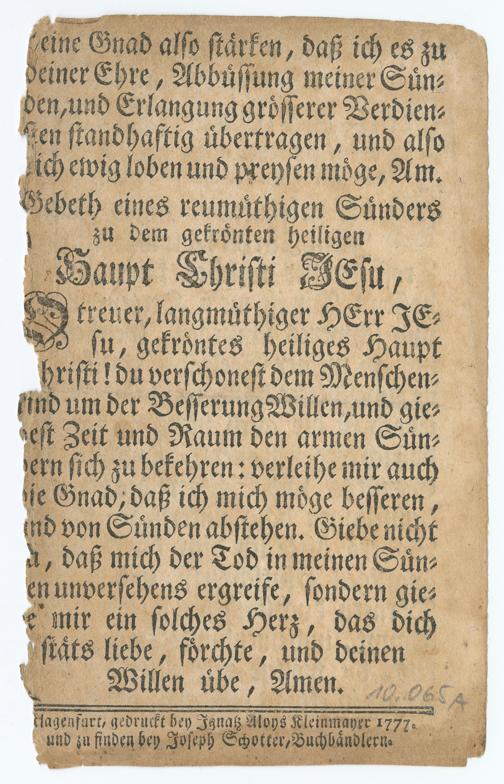 eine Gnad also stärken, daß ich es zu
deiner Ehre, Abbüssung meiner Sün-
den, und Erlangung grösserer Verdien-
sten standhaftig übertragen, und also
dich ewig loben und preysen möge, Am.
Gebeth eines reumüthigen Sünders
zu dem gekrönten heiligen
Haupt Christi JEsu,
O treuer, langmüthiger HErr JE-
su, gekröntes heiliges Haupt
Christi! du verschonest dem Menschen-
kind um der Besserung Willen, und gie-
best Zeit und Raum den armen Sün-
dern sich zu bekehren: verleihe mir auch
die Gnad, daß ich mich möge besseren,
und von Sünden abstehen. Giebe nicht
zu, daß mich der Tod in meinen Sün-
den unversehens ergreife, sondern gie-
be mir ein solches Herz, das dich
stäts liebe, förchte, und deinen
Willen übe, Amen.
10.065A
Klagenfurt, gedruckt bey Ignatz Aloys Kleinmayer 1777.
und zu finden bey Joseph Schotter, Buchbändlern.